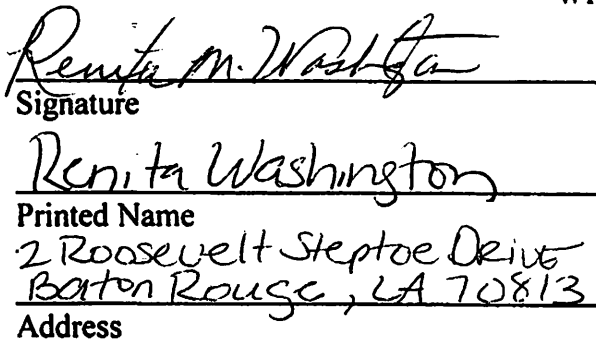 Renita M. Washington
Signature
Renita Washington
Printed Name
2 Roosevelt Steptoe Drive
Baton Rouge, LA 70813
Address